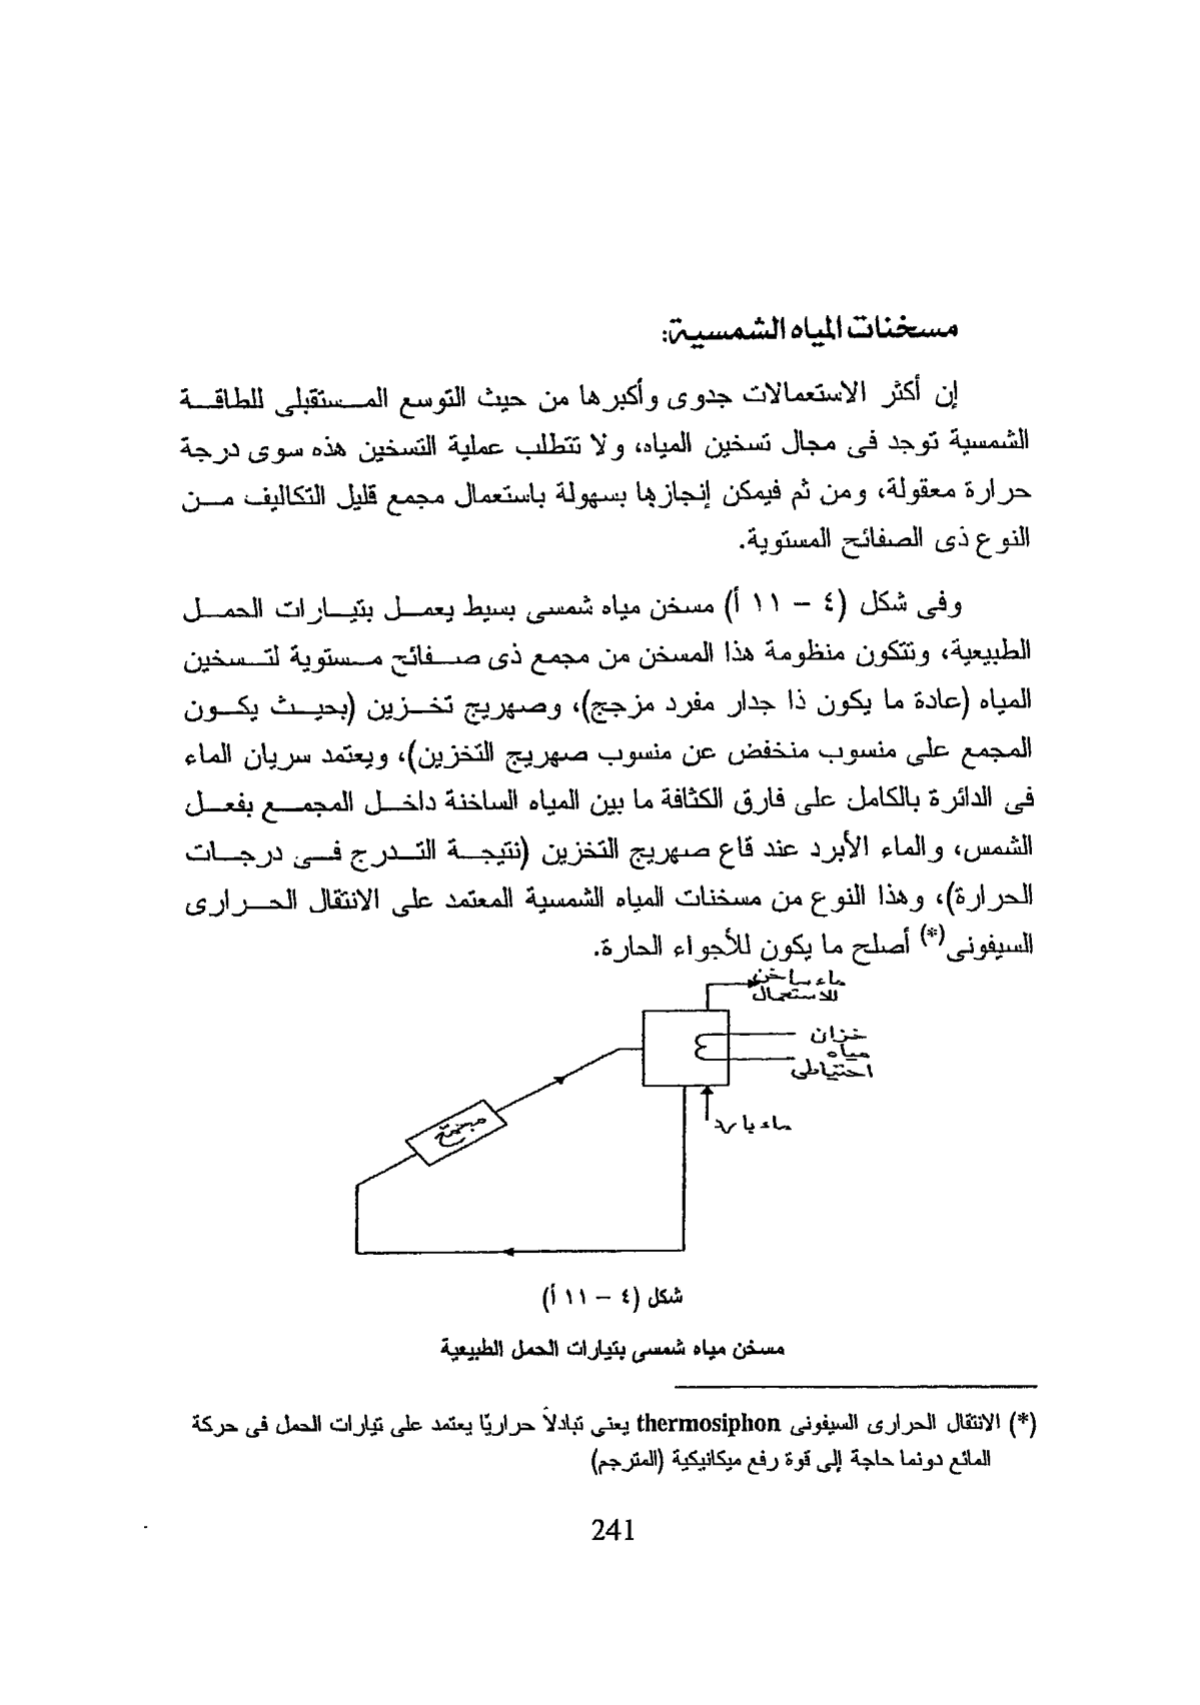 مسخنات المياه الشمسية:
إن أكثر الاستعمالات جدوى وأكبرها من حيث التوسع المستقبلى للطاقة
الشمسية توجد فى مجال تسخين المياه، ولا تتطلب عملية التسخين هذه سوى درجة
حرارة معقولة، ومن ثم فيمكن إنجازها بسهولة باستعمال مجمع قليل التكاليف من
النوع ذى الصفائح المستوية.
وفى شكل (٤ – ١١ أ) مسخن مياه شمسى بسيط يعمل بتيارات الحمل
الطبيعية، وتتكون منظومة هذا المسخن من مجمع ذى صفائح مستوية لتسخين
المياه (عادة ما يكون ذا جدار مفرد مزجج)، وصهريج تخزين (بحيث يكون
المجمع على منسوب منخفض عن منسوب صهريج التخزين)، ويعتمد سريان الماء
فى الدائرة بالكامل على فارق الكثافة ما بين المياه الساخنة داخل المجمع بفعل
الشمس، والماء الأبرد عند قاع صهريج التخزين (نتيجة التدرج فى درجات
الحرارة)، وهذا النوع من مسخنات المياه الشمسية المعتمد على الانتقال الحرارى
السيفونى(*) أصلح ما يكون للأجواء الحارة.
ماء ساخن
للاستعمال
خزان
مياه
احتياطى
ماء بارد
مجتمع
شكل (٤ – ١١ أ)
مسخن مياه شمسى بتيارات الحمل الطبيعية
(*) الانتقال الحرارى السيفونى thermosiphon يعنى تبادلاً حراريًا يعتمد على تيارات الحمل فى حركة
المائع دونما حاجة إلى قوة رفع ميكانيكية (المترجم)
241